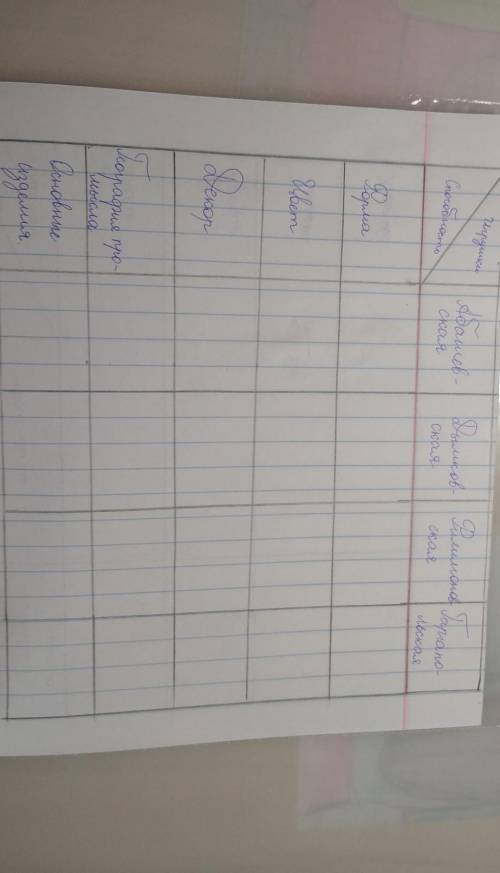 Игрушки
Способность
Абашев-
ская
Дымков-
ская
Филимонов
ская
Каргапо-
льская
Форма
Цвет
Декор
География про-
мысла
Основные
изделия